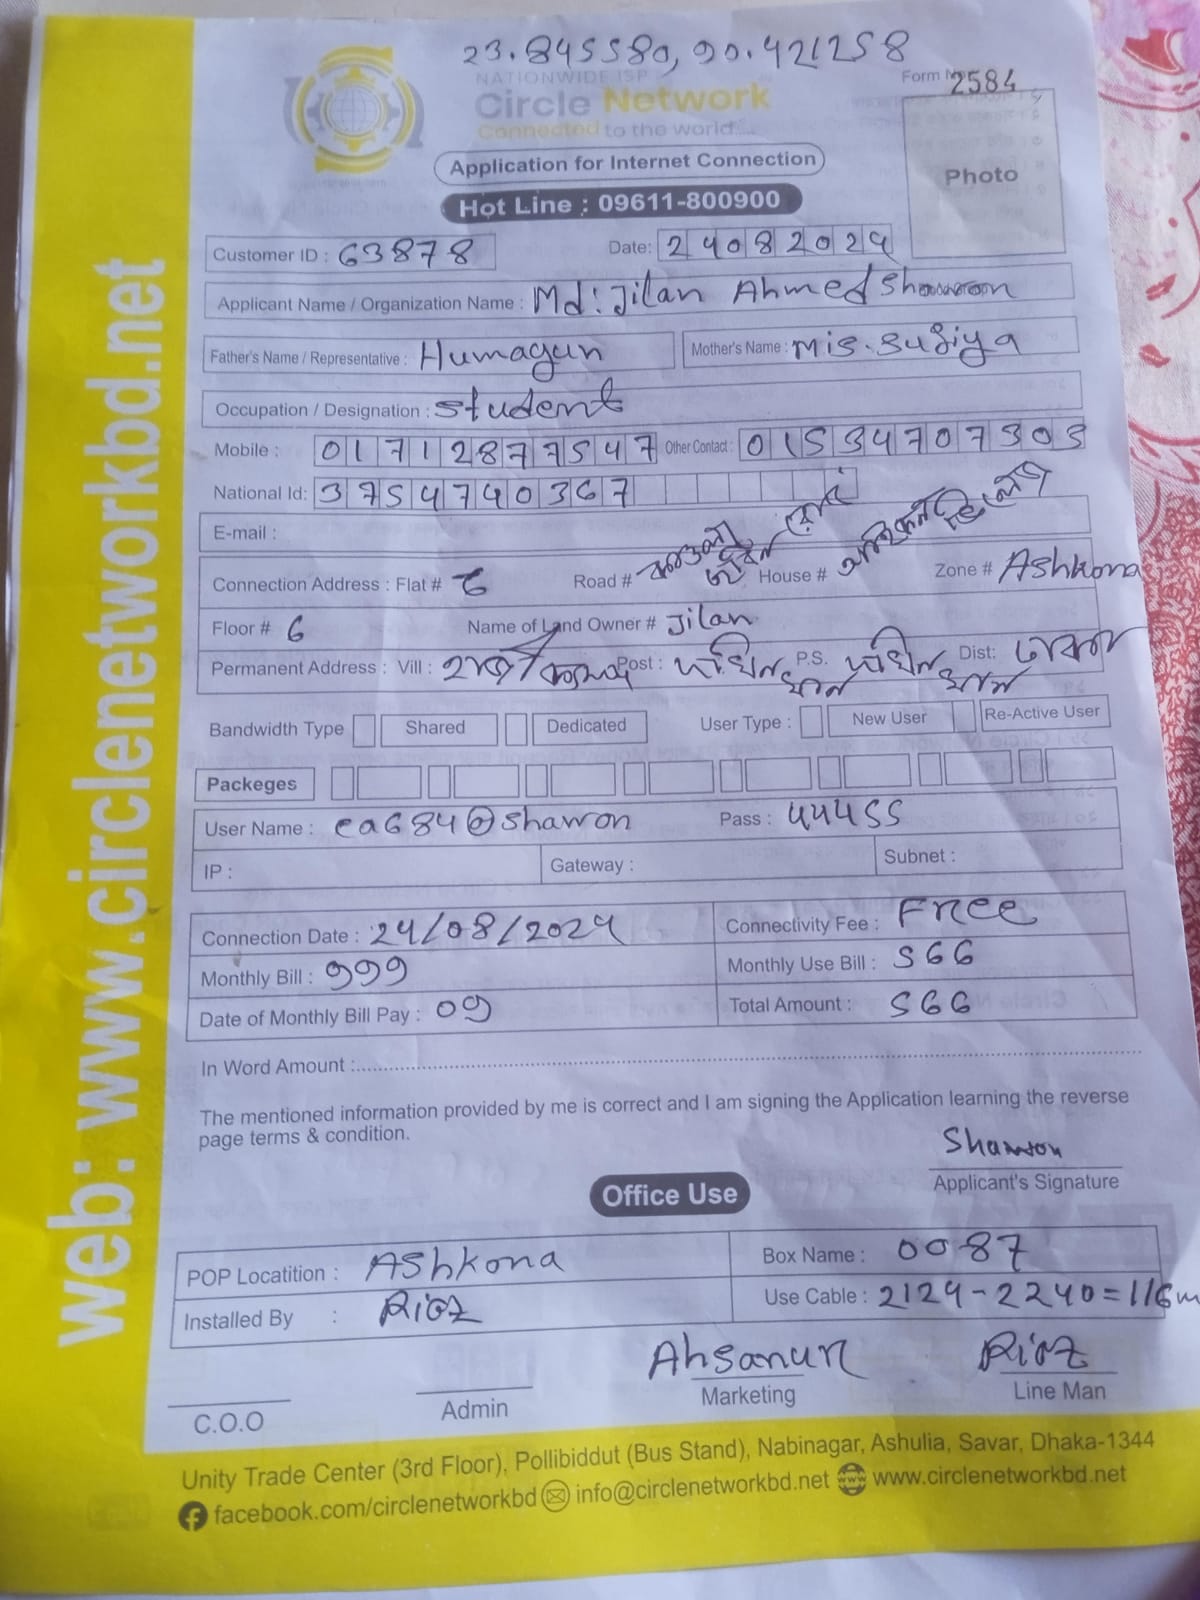 23.845580, 90.421258
NATIONWIDE ISP
Circle Network
Connected to the world...
Form No 2584
Photo
Application for Internet Connection
Hot Line : 09611-800900
Customer ID : 63878 Date: 24082024
Applicant Name / Organization Name : Md: Jilan Ahmed Shawon
Father's Name / Representative : Humagun Mother's Name : Mis. Sufiya
Occupation / Designation : Student
Mobile : 01712877547 Other Contact : 01534707303
National Id: 3754740367
E-mail :
Connection Address : Flat # 6 Road # House # Zone # Ashkona
Floor # 6 Name of Land Owner # Jilan
Permanent Address : Vill : Post : দক্ষিন খান P.S. দক্ষিন খান Dist: ঢাকা
Bandwidth Type Shared Dedicated User Type : New User Re-Active User
Packeges
User Name : ea684@shawon Pass : 44455
IP : Gateway : Subnet :
Connection Date : 24/08/2024 Connectivity Fee : Free
Monthly Bill : 999 Monthly Use Bill : 566
Date of Monthly Bill Pay : 09 Total Amount : 566
In Word Amount :
The mentioned information provided by me is correct and I am signing the Application learning the reverse
page terms & condition.
Shawon
Applicant's Signature
Office Use
POP Locatition : Ashkona Box Name : 0087
Installed By : Riaz Use Cable : 2124-2240=116m
Ahsanur Riaz
C.O.O Admin Marketing Line Man
Unity Trade Center (3rd Floor), Pollibiddut (Bus Stand), Nabinagar, Ashulia, Savar, Dhaka-1344
facebook.com/circlenetworkbd info@circlenetworkbd.net www.circlenetworkbd.net
web: www.circlenetworkbd.net